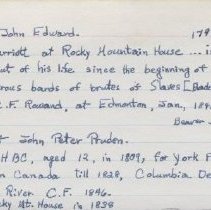 John Edward. 179
rriott at Rocky Mountain House ... i
ut of his life since the beginning of
rous bands of brutes of Slaves [Blad
C.F. Rowand, at Edmonton, Jan, 184
Beaver
John Peter Pruden.
HBC, aged 12, in 1809, for York F
n Canada till 1828, Columbia De
River C.F. 1846.
ky Mt. House in 1838